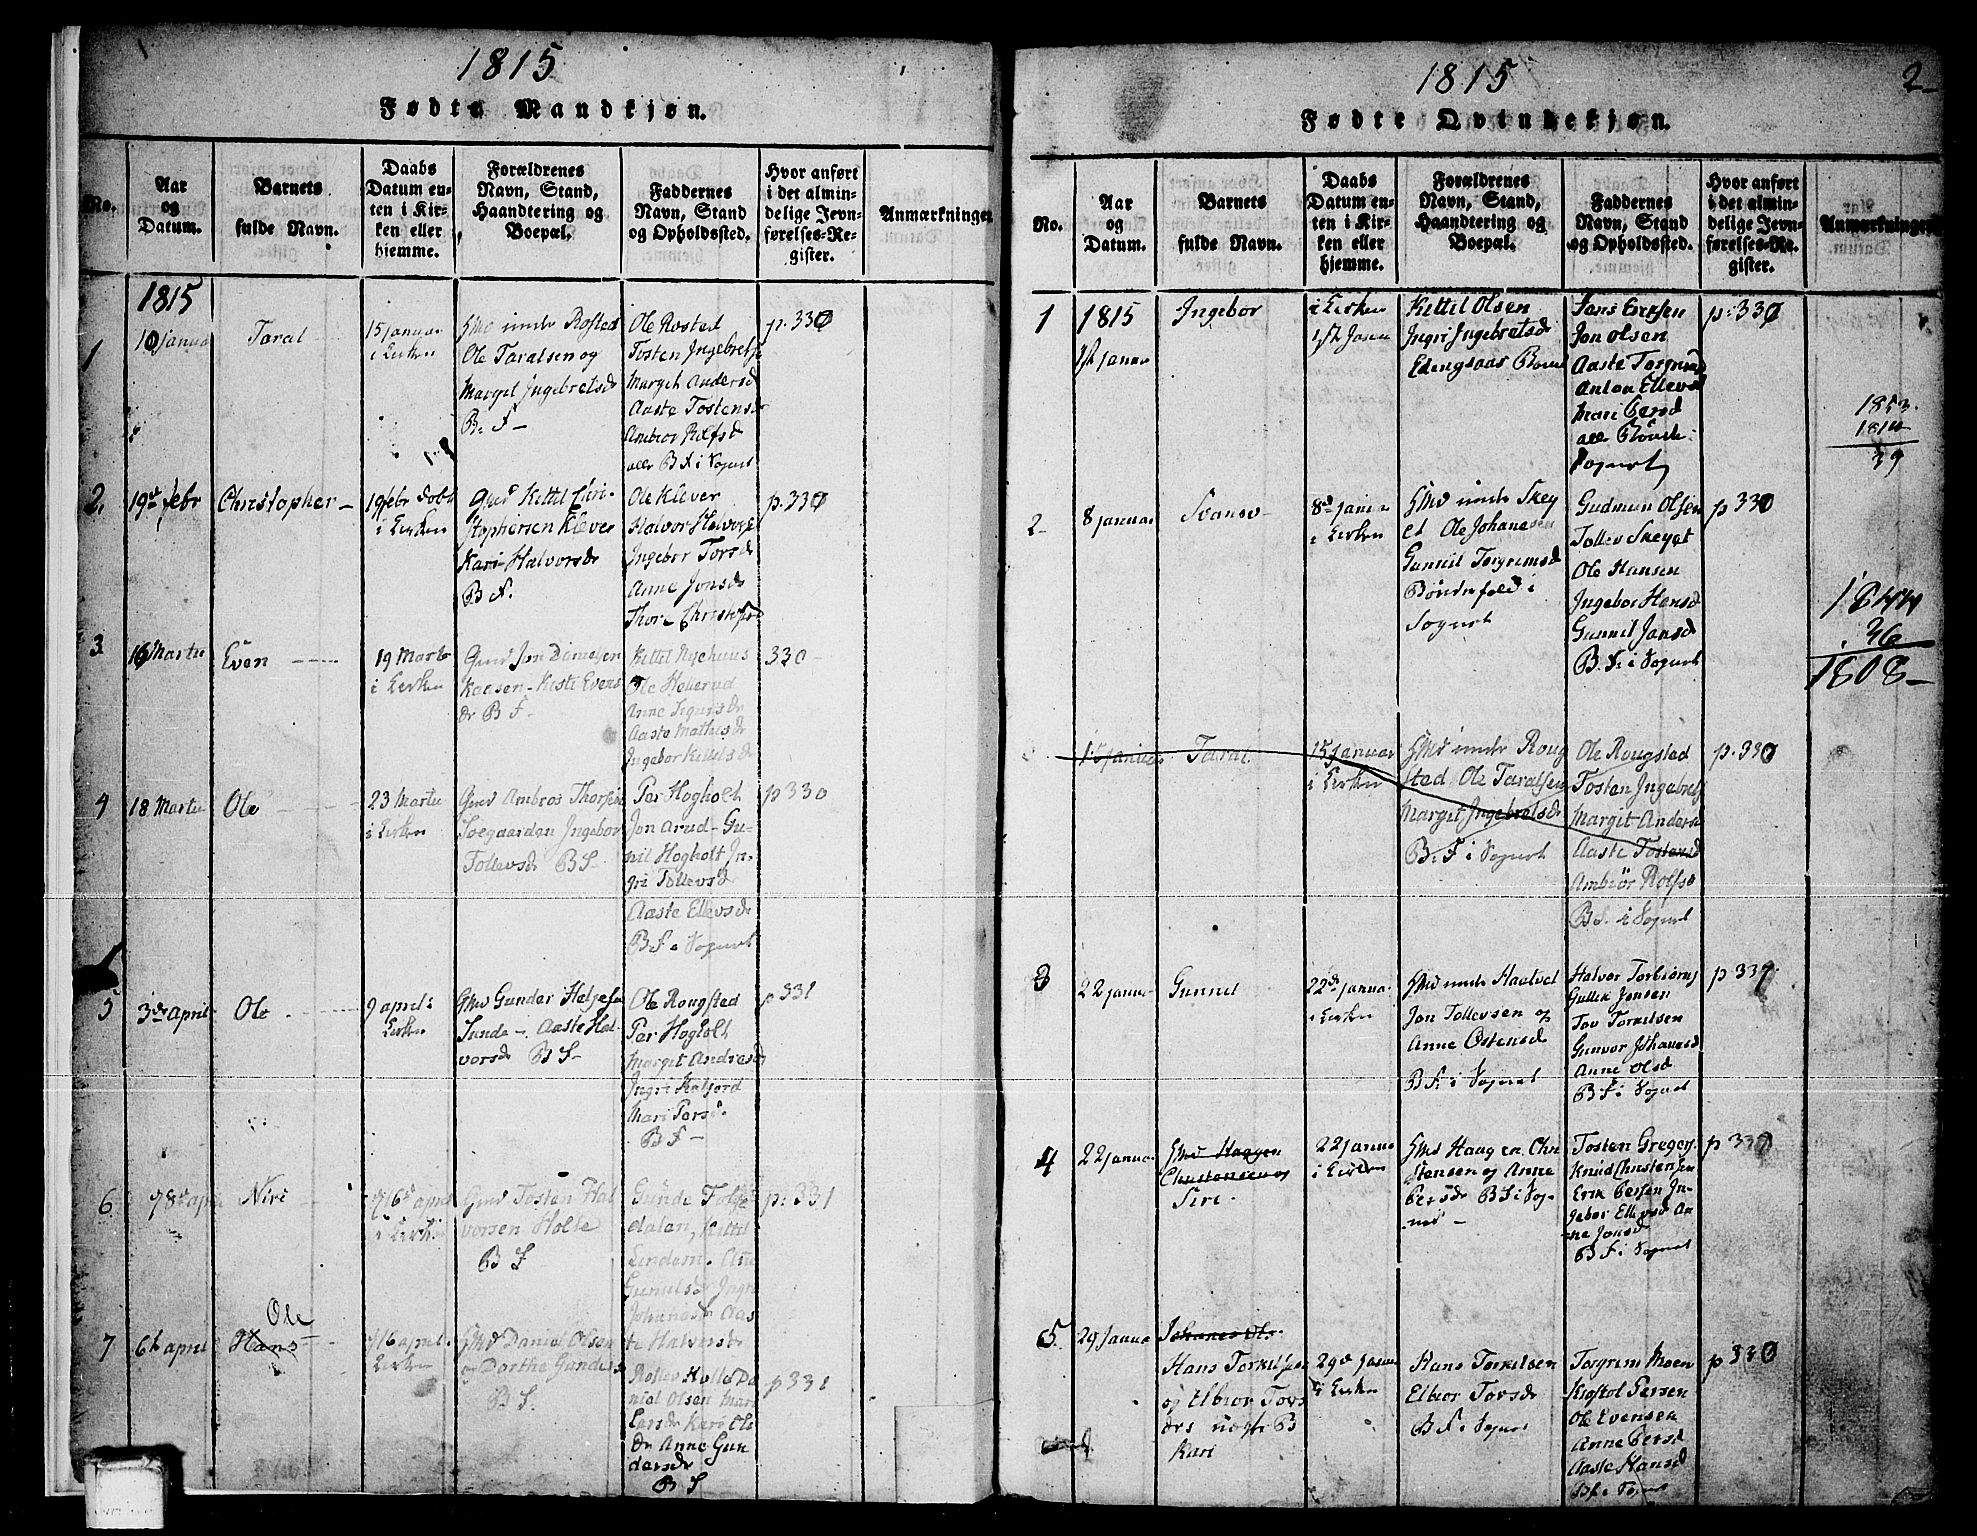 1815
Fødte Mandkjøn.
No.
Aar
og
Datum.
Barnets
fulde Navn.
Daabs
Datum en-
ten i Kir-
ken eller
hjemme.
Forældrenes
Navn, Stand,
Haandtering og
Boepæl.
Faddernes
Navn, Stand
og Opholdssted.
Hvor anført
i det almin-
delige Jevn-
førelses-Re-
gister.
Anmærkninger
1
1815
10 januar
Taral
15 januar
i Kirken
Gmd under Rosted
Ole Taralsen og
Margit Ingebretsd
B. F -
Ole Rosted
Tosten Ingebrets
Margit Andersd
Aaste Tostensd
Ambior Rolfsd
alle B F i Sognet
p. 330
2.
19de febr
Christopher -
19 febr
i Kirken
Gmd Kittil Chri-
stophersen Klever
Kari Halvorsdr
B F.
Ole Klever
Halvor Halvors
Ingebor Torsd
Anne Jonsdr
Thor Christofs
p. 330
3.
16 Martii
Even
19 Marts
i Kirken
Gmd Jon Danielsen
Kaasen - Kisti Evens
dr B F -
Kittil Nyehuus
Ole Hellerud
Anne
Aaste Mathisdr
Ingebor Kittilsdr
330 -
4
18 Martii
Ole
23 Martii
i Kirken
Gmd Ambros Thorsen
Ingebor
Tollevsdr B F -
Per Hogholt
Jon Arud - Gu-
nil Hogholt In-
gri Tollevsd
Aaste Ellevsdr
B F i Sognet
p 330
5
3de april
Ole
9 april i
Kirken
Gmd Gunder Helges
Sunde - Aaste Hal
vorsdr B F -
Ole Rougsted
Per Hogholt
Margit Andersd
Ingri Kalfjord
Mari Persd.
B F -
p 331
6
8de april
Niri
16de april
i Kirken
Gmd Tosten Hal
vorsen Holte
B F
Gunde
dalen, Kittil
Lindem.
Gunulsdr Ingri
Johanesdr Aas
te Halvorsdr
p. 331
7
6te april
Ole
Hans
16 april
Kirken
Gmd Daniel Olsen
og Dorthe Gunders
B F.
Rollev Holte Da
niel Olsen Mari
Larsdr Kari Ols
dr Anne Gun
dersdr
B F
p 331
1815
2-
Fødte Qvindekjøn.
No.
Aar
og
Datum.
Barnets
fulde Navn.
Daabs
Datum en-
ten i Kir-
ken eller
hjemme.
Forældrenes
Navn, Stand,
Haandtering og
Boepæl.
Faddernes
Navn, Stand
og Opholdssted.
Hvor anført
i det almin-
delige Jevn-
førelses-Re-
gister.
Anmærkninger
1
1815
1ste januar
Ingebor
i Kirken
1ste Janu
Kittil Olsen
Ingri Ingebretsd
Jon Olsen
Aaste Torgrimsd
Mari Persd
alle
Sognet
p. 330
1853
1814
39
2-
8 januar
8de janu
i Kirken
Gmd under Skey
et Ole Johanesen
Gunnil Torgrimsd
Bøndefolk i
Sognet
Gudmun Olsen
Tollev Skeyet
Ole Hansen
Ingebor Hansd
Gunnil Jansd
B F i Sognet
p 330
1844
36
1808-
15 januar
Taral
15 januar
i Kirken
Gmd under Roug
sted Ole Taralsen
Margit Ingebretsdr
B. F i Sognet
Ole Rougstad
Tosten Ingebrets
Margit Anders
Aaste Tostensd
Ambiør Rolfsd
B F. i Sognet
p. 330
3
22 januar
Gunnil
22de janua.
i Kirken
Gmd under Haatvet
Jon Tollevsen og
Anne Ostensd
B F. i Sognet
Halvor Torbiørns
Gullik Jonsen
Tov Torkilsen
Gunvor Johanesd
Anne Olsd
B F i Sognet
p 330
4
22 janua.
Gmd Haagen
Christensen og
Siri -
22 janua
i Kirken
Gmd Haagen Chri
stensen og Anne
Persdr B F i Sog-
net -
Tosten Gregers
Knud Christensen
Erik Persen In-
gebor Ellevsd An
ne Jonsd
B F i Sognet
p 330
5
29 Janua
Johanes Ols-
Hans Torkilsen
og Elbior Tors
drs
Kari
29de Janu
i Kirken
Hans Torkilsen
Elbior Torsdr
B F i Sognet
Torgrim Moen
Kistol Persen
Ole Evensen
Anne Persd
Aaste Hansd
B F i Sognet
p 330